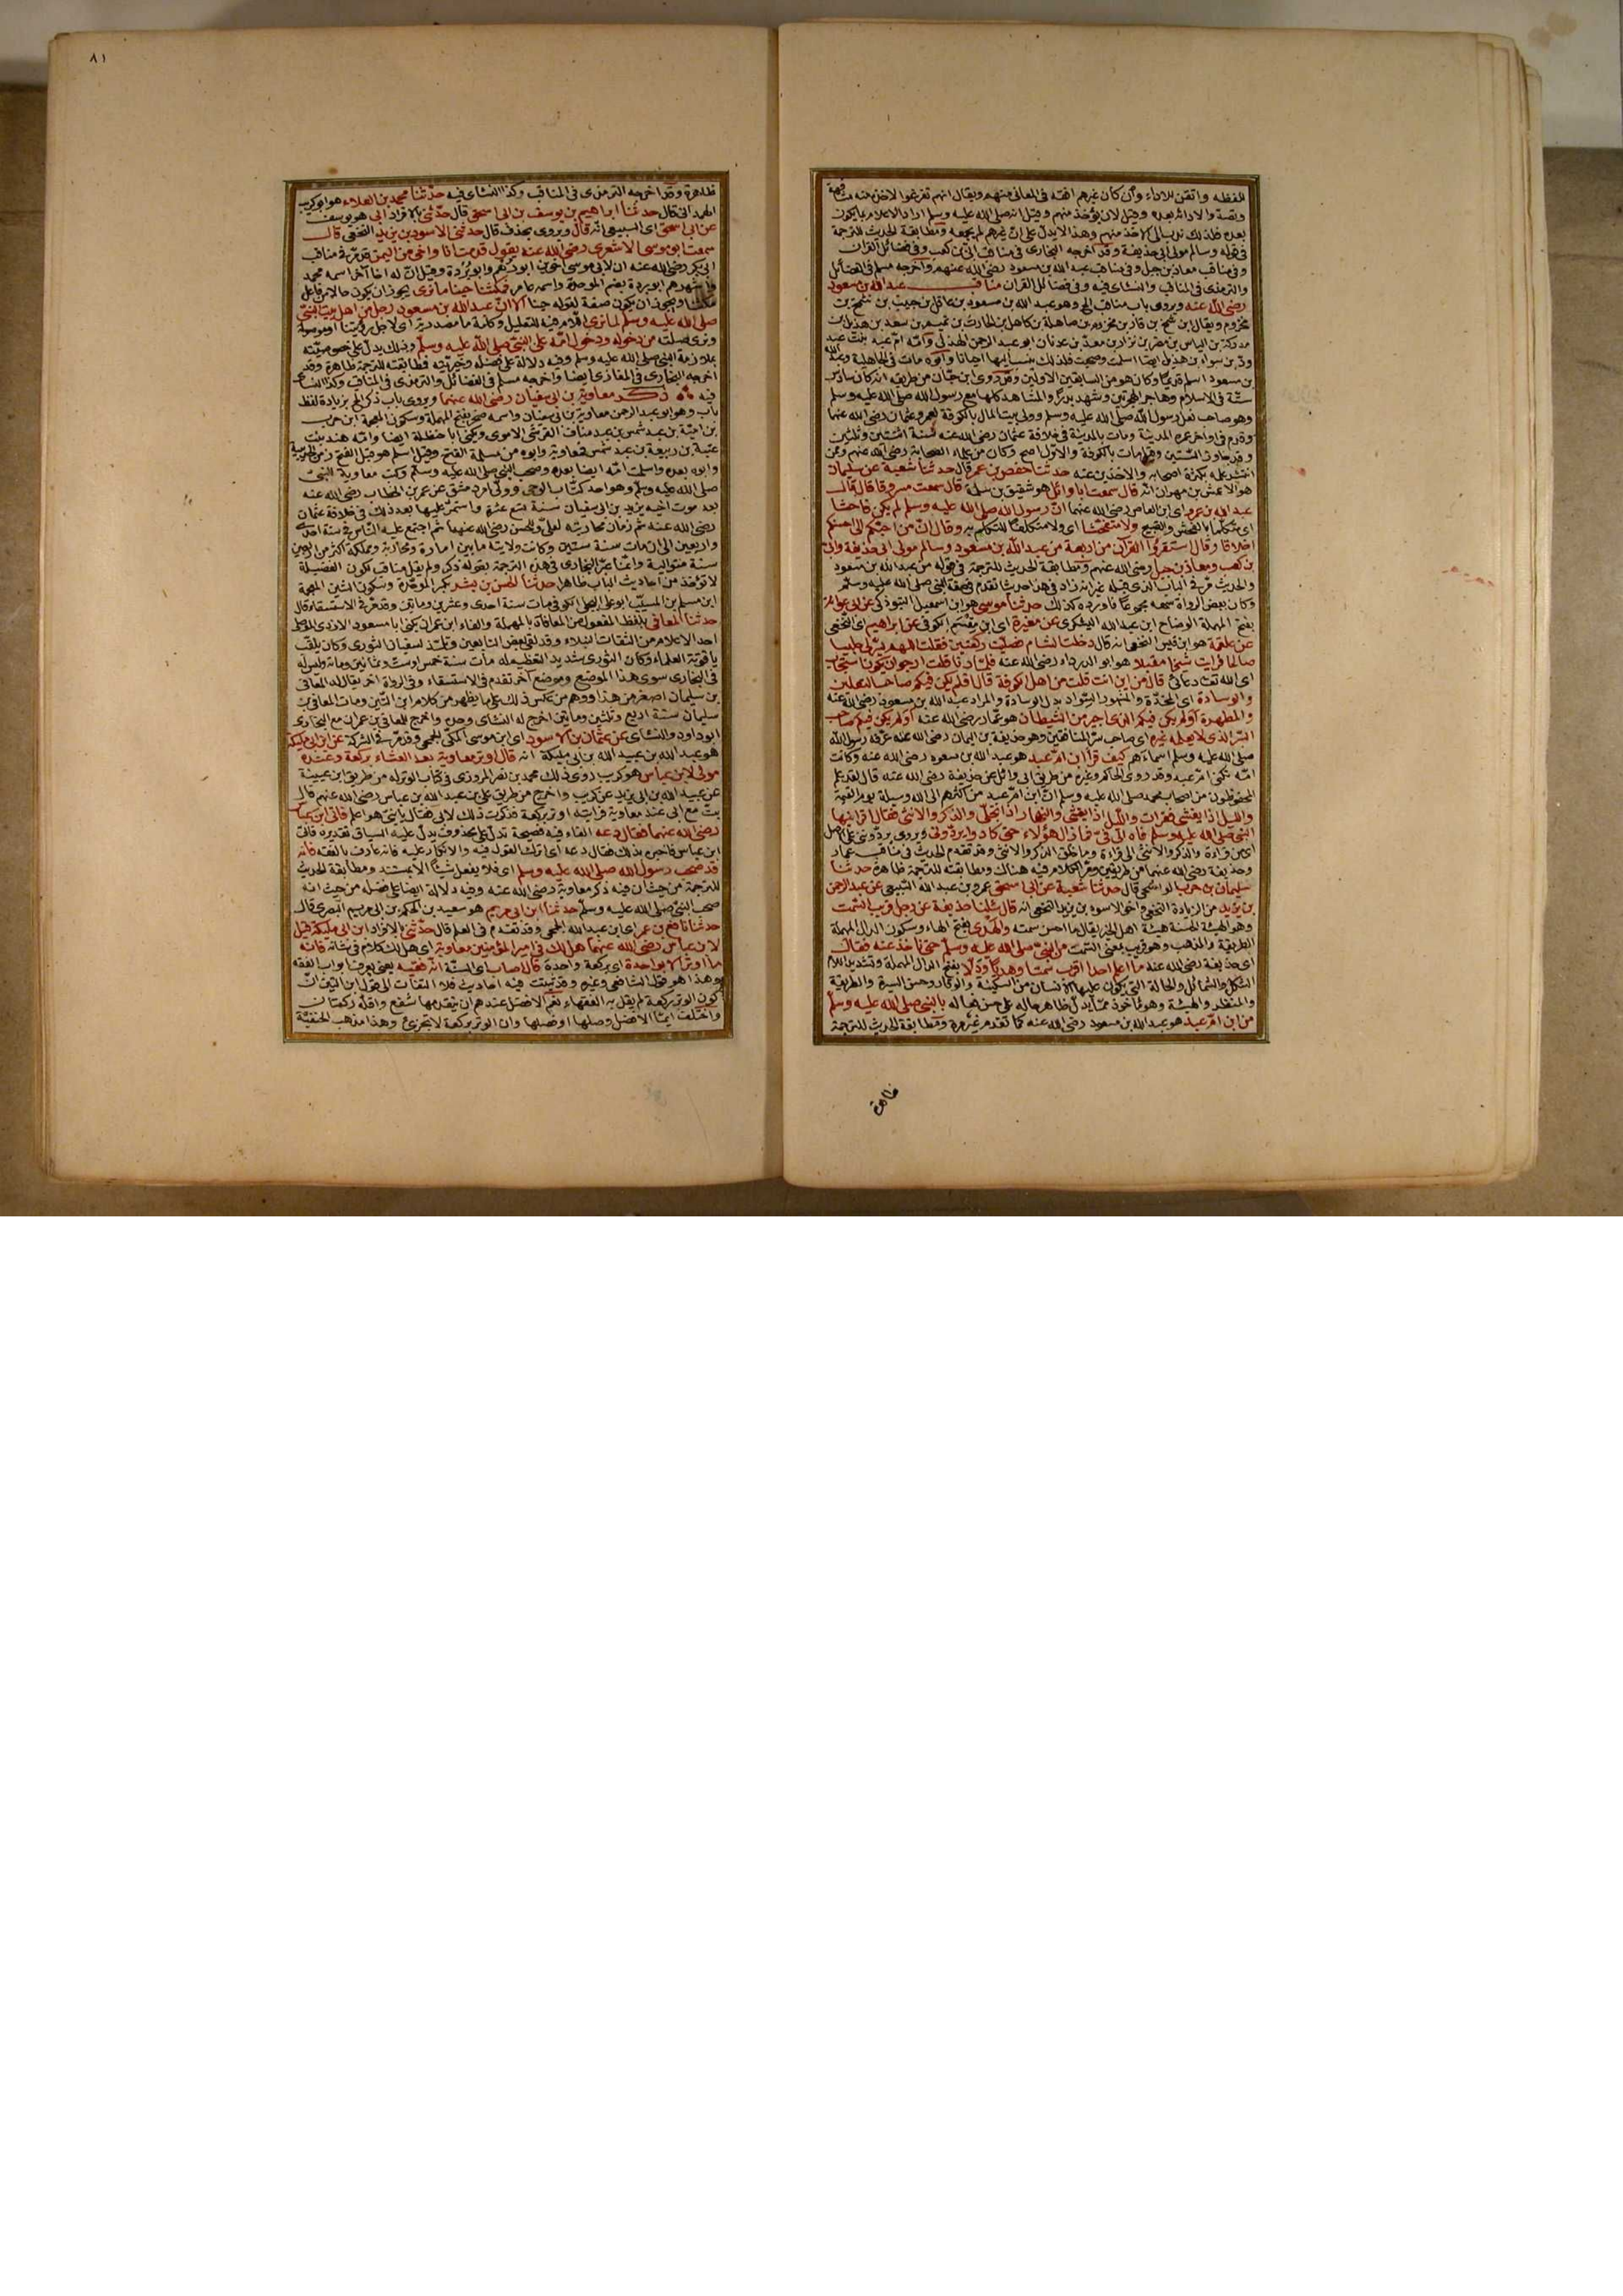 للفظه واتقن للاداء وان كان غيرهم افقه في المعاني منهم ويقال انهم تفرغوا لاخذه منه مشافهة
وبقية والادائه بعده وقيل لان يؤخذ منهم وقيل انه صلى الله عليه وسلم اراد الاعلام بما يكون
بعده فلذلك ندب الى الاخذ منهم وهذا لا يدل على ان غيرهم لم يجمعه ومطابقة الحديث للترجمة
في قوله وسالم مولى ابي حذيفة وقد اخرجه البخاري في مناقب ابي بن كعب وفي فضائل القرآن
وفي مناقب معاذ بن جبل وفي مناقب عبد الله بن مسعود رضي الله عنهم واخرجه مسلم في الفضائل
والترمذي في المناقب والنسائي فيه وفي فضائل القرآن مناقب عبد الله بن مسعود
رضي الله عنه ويروى باب مناقب الخ وهو عبد الله بن مسعود بن غافل بن حبيب بن شمخ بن
مخزوم ويقال ابن شمخ بن فار بن مخزوم بن صاهلة بن كاهل بن الحارث بن تميم بن سعد بن هذيل بن
مدركة بن الياس بن مضر بن نزار بن معد بن عدنان ابو عبد الرحمن الهذلي وامه ام عبد بنت عبد
ود بن سواء بن هذيل ايضا اسلمت وصحبت فلذلك ينسب اليها احيانا وابوه مات في الجاهلية وعبد الله
بن مسعود اسلم قديما وكان هو من السابقين الاولين وقد روى ابن حبان من طريقه انه كان سادس
ستة في الاسلام وهاجر الهجرتين وشهد بدرا والمشاهد كلها مع رسول الله صلى الله عليه وسلم
وهو صاحب نعل رسول الله صلى الله عليه وسلم وولي بيت المال بالكوفة لعمر وعثمان رضي الله عنهما
وقدم في اواخر عمره المدينة ومات بالمدينة في خلافة عثمان رضي الله عنه سنة اثنتين وثلثين
وقد جاوز الستين وقيل مات بالكوفة والاول اصح وكان من علماء الصحابة رضي الله عنهم وممن
انتشر علمه بكثرة اصحابه والاخذين عنه حدثنا حفص بن عمر قال حدثنا شعبة عن سليمان
هو الاعمش بن مهران انه قال سمعت ابا وائل هو شقيق بن سلمة قال سمعت مسروقا قال قال
عبد الله بن عمرو اي ابن العاص رضي الله عنهما ان رسول الله صلى الله عليه وسلم لم يكن فاحشا
اي متكلما بالفحش والقبيح ولا متفحشا اي ولا متكلفا للتكلم به وقال ان من احبكم الي احسنكم
اخلاقا وقال استقرؤا القرآن من اربعة من عبد الله بن مسعود وسالم مولى ابي حذيفة وابي
بن كعب ومعاذ بن جبل رضي الله عنهم ومطابقة الحديث للترجمة في قوله من عبد الله بن مسعود
والحديث مر في الباب الذي قبله غير انه زاد في هذا حديثا تقدم في صفة النبي صلى الله عليه وسلم
وكان بعض الرواة سمعه مجموعا فاورده كذلك حدثنا موسى هو ابن اسمعيل التبوذكي عن ابي عوانة
بفتح المهملة الوضاح ابن عبد الله اليشكري عن مغيرة اي ابن مقسم الكوفي عن ابراهيم اي النخعي
عن علقمة هو ابن قيس النخعي انه قال دخلت الشام فصليت ركعتين فقلت اللهم يسر لي جليسا
صالحا فرايت شيخا مقبلا هو ابو الدرداء رضي الله عنه فلما دنا قلت ارجو ان يكون استجاب
اي الله تعالى دعائي قال من اين انت قلت من اهل الكوفة قال افلم يكن فيكم صاحب النعلين
والوسادة اي المخدة والمشهور السواد بدل الوسادة والمراد عبد الله بن مسعود رضي الله عنه
والمطهرة اولم يكن فيكم الذي اجير من الشيطان هو عمار رضي الله عنه اولم يكن فيكم صاحب
السر الذي لا يعلمه غيره اي صاحب سر المنافقين وهو حذيفة بن اليمان رضي الله عنه عرفه رسول الله
صلى الله عليه وسلم اسماءهم كيف قرأ ابن ام عبد هو عبد الله بن مسعود رضي الله عنه وكانت
امه تكنى ام عبد وقد روى الحاكم وغيره من طريق ابي وائل عن حذيفة رضي الله عنه قال لقد علم
المحفوظون من اصحاب محمد صلى الله عليه وسلم ان ابن ام عبد من اكثرهم الى الله وسيلة يوم القيمة
والليل اذا يغشى فقرات والليل اذا يغشى والنهار اذا تجلى والذكر والانثى فقال اقرانيها
النبي صلى الله عليه وسلم فاه الى في فما زال هؤلاء حتى كادوا يردوني ويروى يردونني على الاصل
اي من قراءة والذكر والانثى الى قراءة وما خلق الذكر والانثى وقد تقدم الحديث في مناقب عمار
وحذيفة رضي الله عنهما من طريقين ومر الكلام فيه هناك ومطابقته للترجمة ظاهرة حدثنا
سليمان بن حرب الواشحي قال حدثنا شعبة عن ابي اسحق عمرو بن عبد الله السبيعي عن عبد الرحمن
بن يزيد من الزيادة النخعي اخو الاسود بن يزيد النخعي انه قال سألنا حذيفة عن رجل قريب السمت
وهو الهيئة الحسنة هيئة اهل الخير يقال ما احسن سمته والهدي بفتح الهاء وسكون الدال المهملة
الطريقة والمذهب وهو قريب بمعنى السمت من النبي صلى الله عليه وسلم حتى ناخذ عنه فقال
اي حذيفة رضي الله عنه ما اعلم احدا اقرب سمتا وهديا ودلا بفتح الدال المهملة وتشديد اللام
الشكل والشمائل والحالة التي يكون عليها الانسان من السكينة والوقار وحسن السيرة والطريقة
والمنظر والهيئة وهو مأخوذ مما يدل ظاهر حاله على حسن فعاله بالنبي صلى الله عليه وسلم
من ابن ام عبد هو عبد الله بن مسعود رضي الله عنه كما تقدم غير مرة ومطابقة الحديث للترجمة
ظاهرة
٨١
ظاهرة وقد اخرجه الترمذي في المناقب وكذا النسائي فيه حدثنا محمد بن العلاء هو ابو كريب
الهمداني قال حدثنا ابراهيم بن يوسف بن ابي اسحق قال حدثني بالافراد ابي هو يوسف
عن ابي اسحق اي السبيعي انه قال ويروى بحذف قال حدثني الاسود بن يزيد النخعي قال
سمعت ابو موسى الاشعري رضي الله عنه يقول قدمت انا واخي من اليمن قد مر في مناقب
ابي بكر رضي الله عنه ان لابي موسى اخوين ابو رهم وابو بردة وقيل ان له اخا آخر اسمه محمد
واشهرهم ابو بردة بضم الموحدة واسمه عامر فمكثنا حينا ما نرى يجوز ان يكون حالا من فاعل
مكثنا ويجوز ان يكون صفة لقوله حينا الا ان عبد الله بن مسعود رجل من اهل بيت النبي
صلى الله عليه وسلم لما نرى اللام فيه للتعليل وكلمة ما مصدرية اي لاجل رؤيتنا او موصولة
ونرى صلته من دخوله ودخول امه على النبي صلى الله عليه وسلم وذلك يدل على خصوصيته
بملازمة النبي صلى الله عليه وسلم وفيه دلالة على فضله وخيريته فمطابقته للترجمة ظاهرة وقد
اخرجه البخاري في المغازي ايضا واخرجه مسلم في الفضائل والترمذي في المناقب وكذا النسائي
فيه ذكر معاوية بن ابي سفيان رضي الله عنهما ويروى باب ذكر الخ بزيادة لفظ
باب وهو ابو عبد الرحمن معاوية بن ابي سفيان واسمه صخر بفتح المهملة وسكون المعجمة ابن حرب
بن امية بن عبد شمس بن عبد مناف القرشي الاموي ويكنى ابا حنظلة ايضا وامه هند بنت
عتبة بن ربيعة بن عبد شمس فمعاوية وابوه من مسلمة الفتح وقيل اسلم هو قبل الفتح زمن الحديبية
وابوه بعده واسلمت امه ايضا بعده وصحب النبي صلى الله عليه وسلم وكتب معاوية للنبي
صلى الله عليه وسلم وهو احد كتاب الوحي وولي امر دمشق عن عمر بن الخطاب رضي الله عنه
بعد موت اخيه يزيد بن ابي سفيان سنة تسع عشرة واستمر عليها بعد ذلك في خلافة عثمان
رضي الله عنه ثم زمان محاربته لعلي وللحسن رضي الله عنهما ثم اجتمع عليه الناس في سنة احدى
واربعين الى ان مات سنة ستين وكانت ولايته ما بين امارة ومحاربة ومملكة اكثر من اربعين
سنة متوالية وانما عبر البخاري في هذه الترجمة بقوله ذكر ولم يقل مناقب لكون الفضيلة
لا تؤخذ من احاديث الباب ظاهرا حدثنا الحسن بن بشر بكسر الموحدة وسكون الشين المعجمة
ابن مسلم بن المسيب ابو علي البجلي الكوفي مات سنة احدى وعشرين ومأتين وقد مر في الاستسقاء قال
حدثنا المعافى بلفظ المفعول من المعافاة بالمهملة والفاء ابن عمران يكنى بابا مسعود الازدي الموصلي
احد الاعلام من الثقات النبلاء وقد لقي بعض التابعين وتلمذ لسفيان الثوري وكان يلقب
ياقوتة العلماء وكان الثوري شديد التعظيم له مات سنة خمس او ست وثمانين ومائة وليس له
في البخاري سوى هذا الموضع وموضع آخر تقدم في الاستسقاء وفي الرواة آخر يقال له المعافى
بن سليمان اصغر من هذا ووهم من عكس ذلك على ما يظهر من كلام ابن التين ومات المعافى بن
سليمان سنة اربع وثلثين ومأتين اخرج له النسائي وحده واخرج للمعافى بن عمران مع البخاري
ابو داود والنسائي عن عثمان بن الاسود اي ابن موسى المكي الجمحي وقد مر في الشركة عن ابن ابي مليكة
هو عبد الله بن عبيد الله بن ابي مليكة انه قال اوتر معاوية بعد العشاء بركعة وعنده
مولى لابن عباس هو كريب روى ذلك محمد بن نصر المروزي في كتاب الوتر له من طريق ابن عيينة
عن عبيد الله بن ابي يزيد عن كريب واخرج من طريق علي بن عبد الله بن عباس رضي الله عنهم قال
بت مع ابي عند معاوية فرايته اوتر بركعة فذكرت ذلك لابي فقال يا بني هو اعلم فاتى ابن عباس
رضي الله عنهما فقال دعه الفاء فيه فصيحة تدل على محذوف يدل عليه السياق تقديره فاتى
ابن عباس فاخبره بذلك فقال دعه اي اترك القول فيه والانكار عليه فانه عارف بالفقه فانه
قد صحب رسول الله صلى الله عليه وسلم اي فلا يفعل شيئا الا بمستند ومطابقة الحديث
للترجمة من حيث ان فيه ذكر معاوية رضي الله عنه وفيه دلالة ايضا على فضله من حيث انه
صحب النبي صلى الله عليه وسلم حدثنا ابن ابي مريم هو سعيد بن الحكم بن ابي مريم البصري قال
حدثنا نافع بن عمر اي ابن عبد الله الجمحي وقد تقدم في العلم قال حدثني بالافراد ابن ابي مليكة قيل
لابن عباس رضي الله عنهما هل لك في امير المؤمنين معاوية اي هل لك كلام في شانه فانه
ما اوتر الا بواحدة اي بركعة واحدة قال اصاب اي السنة انه فقيه يعني يعرف ابواب الفقه
وهذا هو قول الشافعي وغيره وقد ثبتت فيه احاديث فلا التفات الى قول ابن التين ان
كون الوتر بركعة لم يقل به الفقهاء نعم الافضل عندهم ان يتقدمها شفع واقله ركعتان
واختلف ايما الافضل وصلها او فصلها وان الوتر بركعة لا تجزئ وهذا مذهب الحنفية